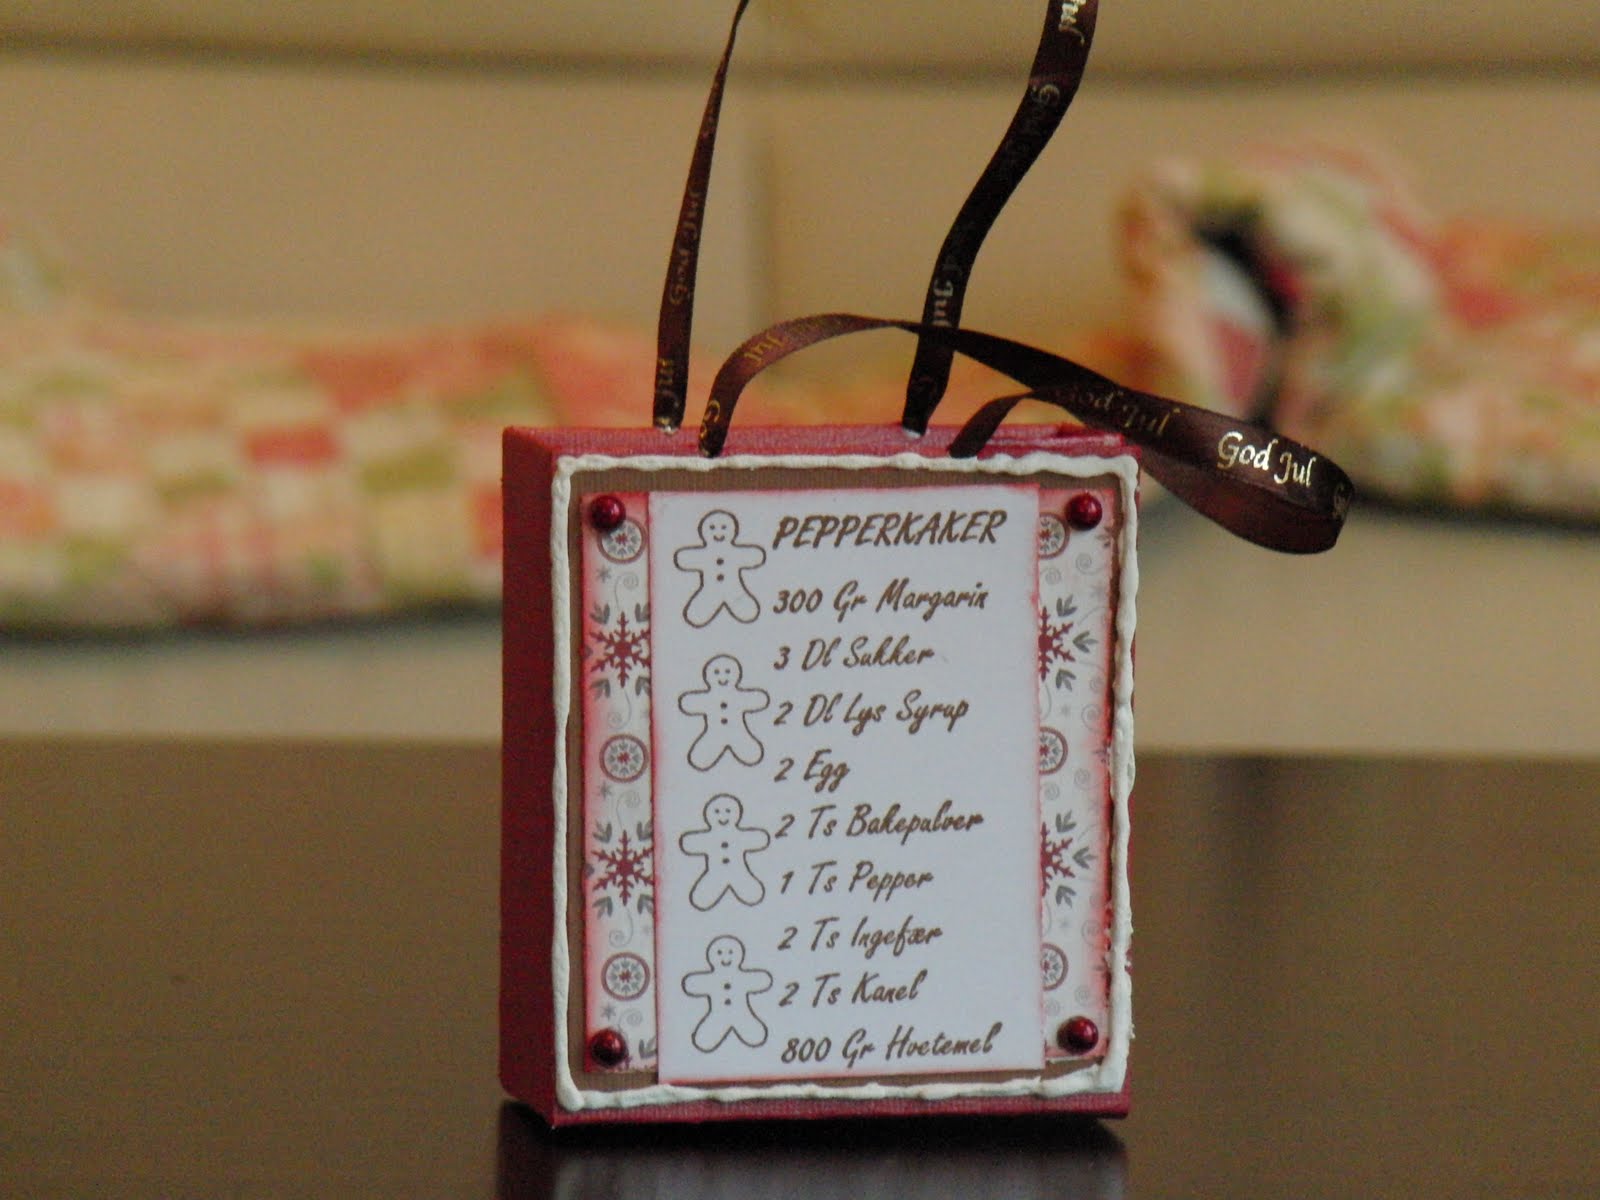 God Jul
God Jul
PEPPERKAKER
300 Gr Margarin
3 Dl Sukker
2 Dl Lys Syrup
2 Egg
2 Ts Bakepulver
1 Ts Pepper
2 Ts Ingefær
2 Ts Kanel
800 Gr Hvetemel